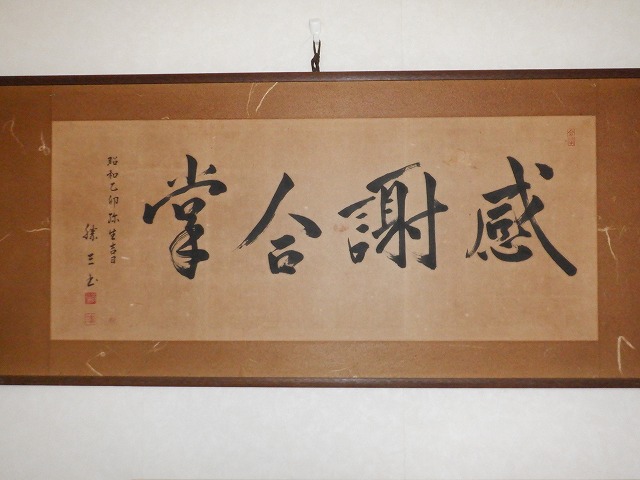 感謝合掌
昭和己卯弥生吉日
勝三書